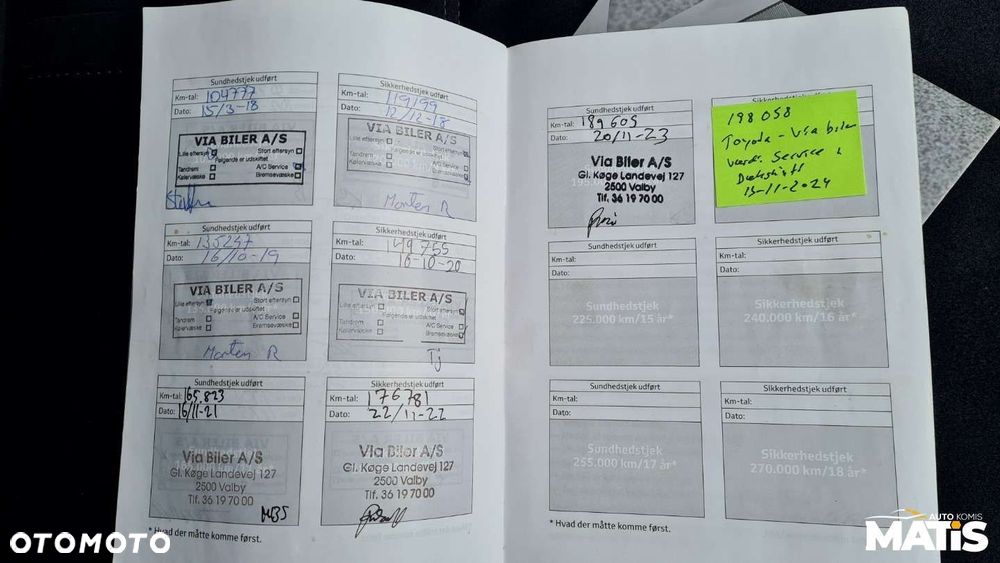 Sundhedstjek udført
Km-tal: 104777
Dato: 15/3-18
VIA BILER A/S
Lille eftersyn
Stort eftersyn
Følgende er udskiftet
Tandrem
A/C Service
Kølervæske
Bremsevæske
Sikkerhedstjek udført
Km-tal: 119199
Dato: 12/12-18
VIA BILER A/S
Lille eftersyn
Stort eftersyn
Følgende er udskiftet
Tandrem
A/C Service
Kølervæske
Bremsevæske
Morten R
Sundhedstjek udført
Km-tal: 135247
Dato: 16/10-19
VIA BILER A/S
Lille eftersyn
Stort eftersyn
Følgende er udskiftet
Tandrem
A/C Service
Kølervæske
Bremsevæske
Morten R
Sikkerhedstjek udført
Km-tal: 149755
Dato: 16-10-20
VIA BILER A/S
Lille eftersyn
Stort eftersyn
Følgende er udskiftet
Tandrem
A/C Service
Kølervæske
Bremsevæske
Tj
Sundhedstjek udført
Km-tal: 165.823
Dato: 16/11-21
Via Biler A/S
Gl. Køge Landevej 127
2500 Valby
Tlf. 36 19 70 00
MBS
Sikkerhedstjek udført
Km-tal: 176781
Dato: 22/11-22
Via Biler A/S
Gl. Køge Landevej 127
2500 Valby
Tlf. 36 19 70 00
* Hvad der måtte komme først.
Sundhedstjek udført
Km-tal: 189605
Dato: 20/11-23
Via Biler A/S
Gl. Køge Landevej 127
2500 Valby
Tlf. 36 19 70 00
198 058
Toyota - Via biler
Service
Dækskift
13-11-2024
Sundhedstjek udført
Km-tal:
Dato:
Sundhedstjek
225.000 km/15 år*
Sikkerhedstjek udført
Km-tal:
Dato:
Sikkerhedstjek
240.000 km/16 år*
Sundhedstjek udført
Km-tal:
Dato:
Sundhedstjek
255.000 km/17 år*
Sikkerhedstjek udført
Km-tal:
Dato:
Sikkerhedstjek
270.000 km/18 år*
* Hvad der måtte komme først.
OTOMOTO
AUTO KOMIS
MATIS